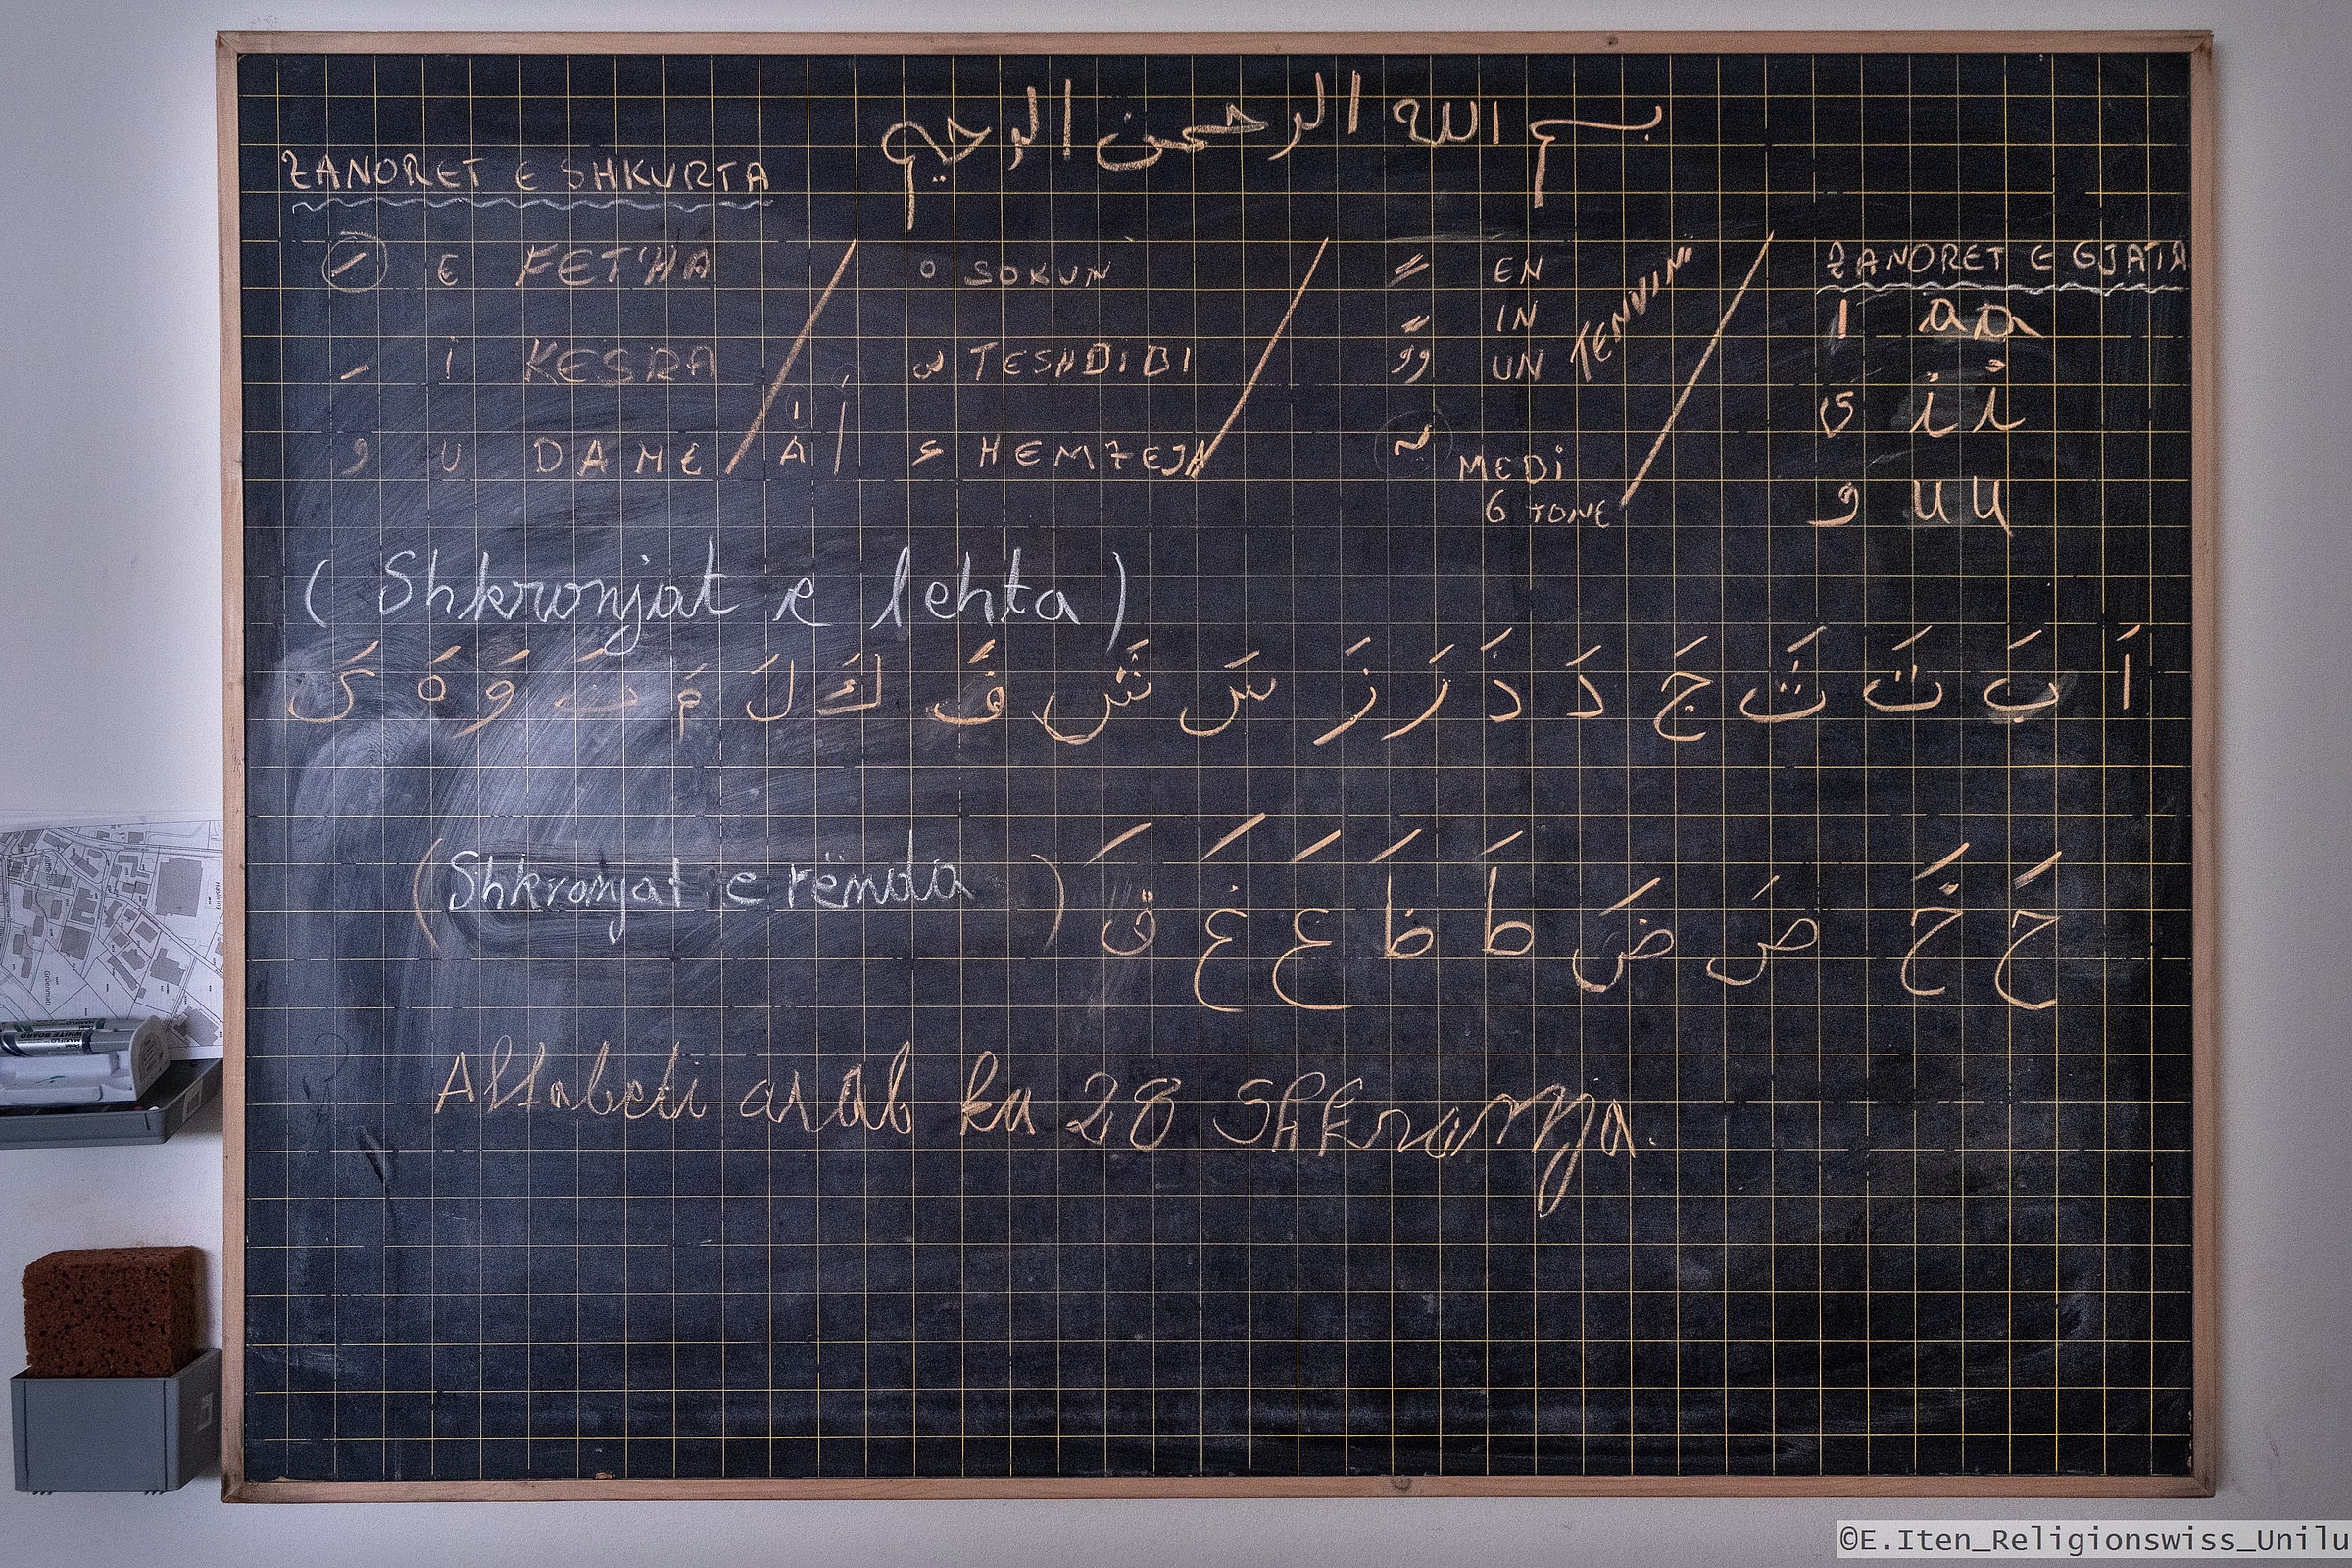 بسم الله الرحمن الرحيم
ZANORET E SHKURTA
َ E FET'HA
ِ i KESRA
ُ U DAME
ْ SOKUN
ّ TESHDIDI
ء HEMZEJA
ً EN
ٍ IN
ٌ UN
TENVINI
ٓ MEDi
6 TONE
ZANORET E GJATA
ا aa
ى ii
و uu
(Shkronjat e lehta)
اَ بَ تَ ثَ جَ دَ ذَ رَ زَ سَ شَ فَ كَ لَ مَ نَ وَ هَ ىَ
(Shkronjat e rënda)
حَ خَ صَ ضَ طَ ظَ عَ غَ قَ
Alfabeti arab ka 28 Shkronja.
©E.Iten_Religionswiss_Unilu